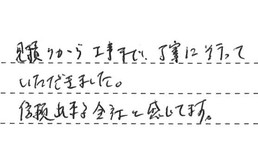 見積りから工事まで、丁寧に行って
いただきました。
信頼出来る会社と感じてます。